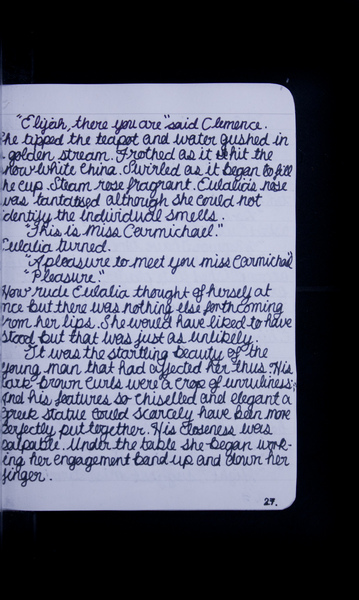 "Elijah, there you are" said Clemence.
he tipped the teapot and water gushed in
golden stream. Frothed as it hit the
now white China. Swirled as it began to fill
he cup. Steam rose fragrant. Eulalia's nose
was tantalised although she could not
identify the individual smells.
"This is Miss Carmichael."
Eulalia turned.
"A pleasure to meet you miss Carmichael
"Pleasure."
How rude Eulalia thought of herself at
nce but there was nothing else forthcoming
rom her lips. She would have liked to have
stood but that was just as unlikely.
It was the startling beauty of the
young man that had affected her thus. His
dark brown curls were a crop of unruliness;
And his features so chiselled and elegant a
greek statue could scarcely have been more
perfectly put together. His closeness was
palpable. Under the table she began work-
ing her engagement band up and down her
finger.
27.